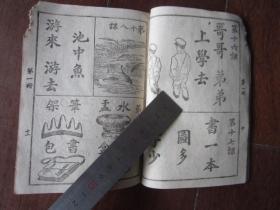 第一冊
第十六課
哥哥 弟弟
上學去
第十七課
書一本
圖多
少
第十八課
池中魚
游來 游去
水盂
筆架
書包
第一冊